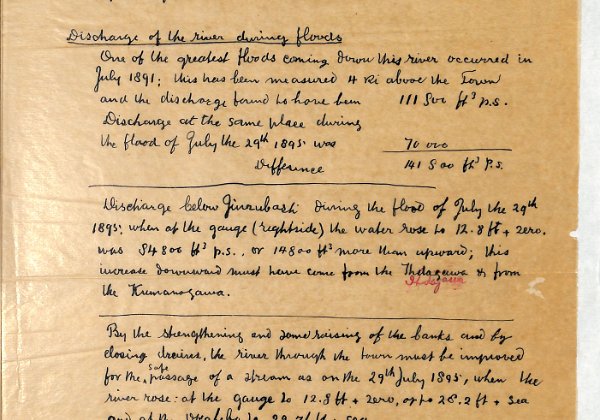 Discharge of the river during floods
One of the greatest floods coming down this river occurred in
July 1891; this has been measured 4 Ri above the Town
and the discharge found to have been 111 800 ft³ p.s.
Discharge at the same place during
the flood of July the 29th 1895 was 70 000
Difference 141 800 ft³ P.S.
Discharge below during the flood of July the 29th
1895; when at the gauge (rightside) the water rose to 12.8 ft + zero.
was 84800 ft³ p.s., or 14800 ft³ more than upward; this
increase downward must have come from the & from
the Kumanogawa.
By the strengthening and some raising of the banks and by
closing drains, the river through the town must be improved
for the safe passage of a stream as on the 29th July 1895, when the
river rose: at the gauge to 12.8 ft + zero, or to 28.2 ft + Sea
and at the to 29.7 ft + sea